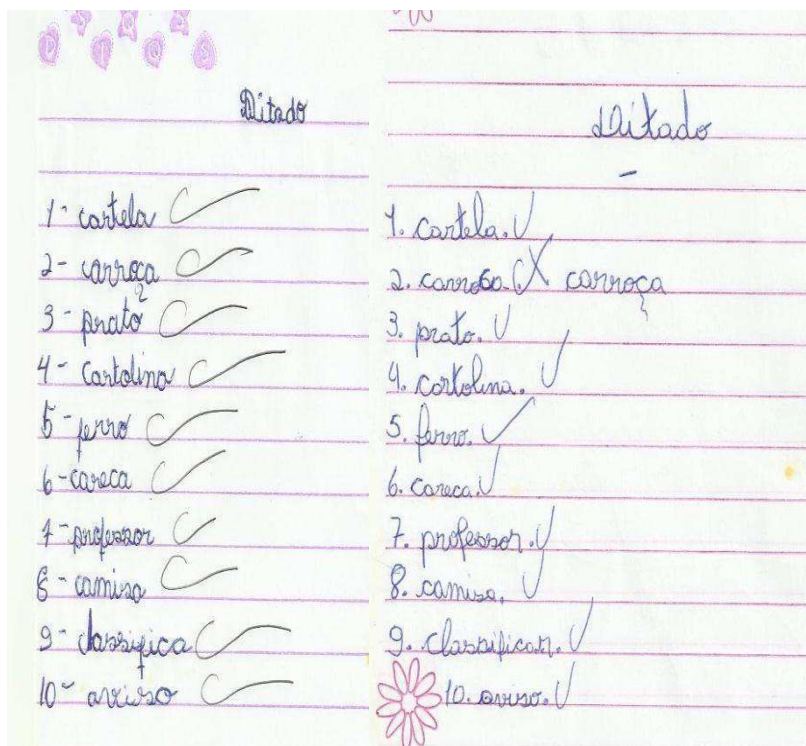 Ditado
1- cartela
2- carroça
3- prato
4- Cartolina
5- ferro
6- careca
7- professor
8- camisa
9- classifica
10- aviso
Ditado
1. cartela.
2. carrosa. X carroça
3. prato.
4. cartolina.
5. ferro.
6. careca.
7. professor.
8. camisa.
9. classificar.
10. aviso.